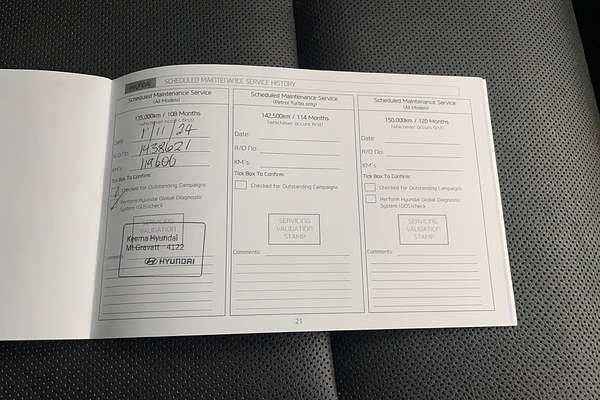 HYUNDAI SCHEDULED MAINTENANCE SERVICE HISTORY
Scheduled Maintenance Service
(All Models)
135,000km / 108 Months
(whichever occurs first)
Date: 1/11/24
R/O No: 1438621
KM's: 119606
Tick Box To Confirm:
Checked for Outstanding Campaigns
Perform Hyundai Global Diagnostic
System (GDS) check
SERVICING
VALIDATION
STAMP
Keema Hyundai
Mt Gravatt 4122
HYUNDAI
Comments:
Scheduled Maintenance Service
(Petrol Turbo only)
142,500km / 114 Months
(whichever occurs first)
Date:
R/O No:
KM's:
Tick Box To Confirm:
Checked for Outstanding Campaigns
SERVICING
VALIDATION
STAMP
Comments:
Scheduled Maintenance Service
(All Models)
150,000km / 120 Months
(whichever occurs first)
Date:
R/O No:
KM's:
Tick Box To Confirm:
Checked for Outstanding Campaigns
Perform Hyundai Global Diagnostic
System (GDS) check
SERVICING
VALIDATION
STAMP
Comments:
21